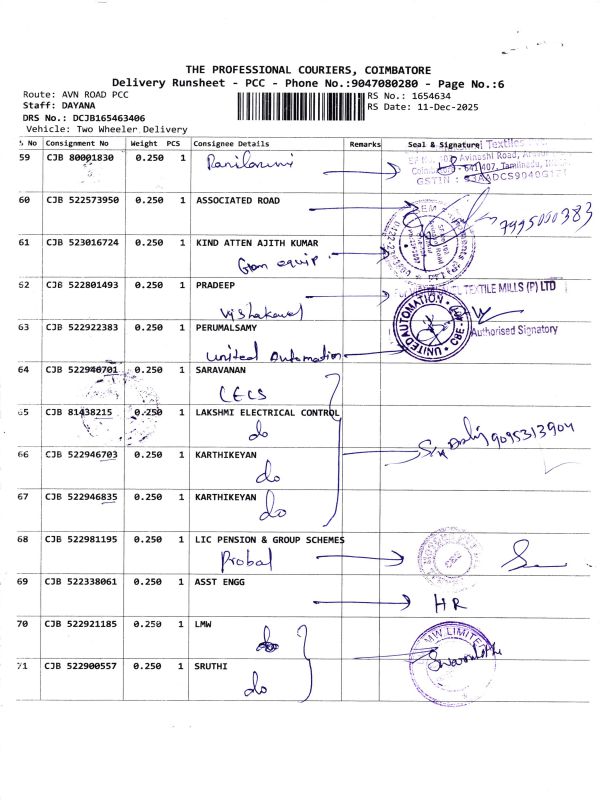 THE PROFESSIONAL COURIERS, COIMBATORE
Delivery Runsheet - PCC - Phone No.:9047080280 - Page No.:6
Route: AVN ROAD PCC
RS No.: 1654634
Staff: DAYANA
RS Date: 11-Dec-2025
DRS No.: DCJB165463406
Vehicle: Two Wheeler Delivery
No Consignment No Weight PCS Consignee Details Remarks Seal & Signature
Textiles
59 CJB 80001830 0.250 1
Avinashi Road,
641407, Tamilnadu,
GSTIN :
60 CJB 522573950 0.250 1 ASSOCIATED ROAD
7995000383
61 CJB 523016724 0.250 1 KIND ATTEN AJITH KUMAR
equip
62 CJB 522801493 0.250 1 PRADEEP
TEXTILE MILLS (P) LTD
63 CJB 522922383 0.250 1 PERUMALSAMY
UNITED AUTOMATION CBE
Authorised Signatory
United Automation
64 CJB 522946701 0.250 1 SARAVANAN
CECS
65 CJB 81438215 0.250 1 LAKSHMI ELECTRICAL CONTROL
do
9095313904
66 CJB 522946703 0.250 1 KARTHIKEYAN
do
67 CJB 522946835 0.250 1 KARTHIKEYAN
do
68 CJB 522981195 0.250 1 LIC PENSION & GROUP SCHEMES
Probal
69 CJB 522338061 0.250 1 ASST ENGG
HR
70 CJB 522921185 0.250 1 LMW
do
MW LIMITED
71 CJB 522900557 0.250 1 SRUTHI
do